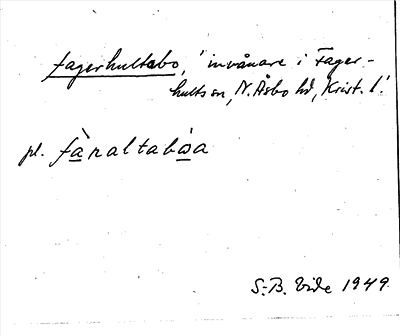 fagerhultabo, 'invånare i Fager-
hults sn, N. Åsbo hd, Krist. l.'
pl. fàraltabòa
S.-B. Vide 1949.